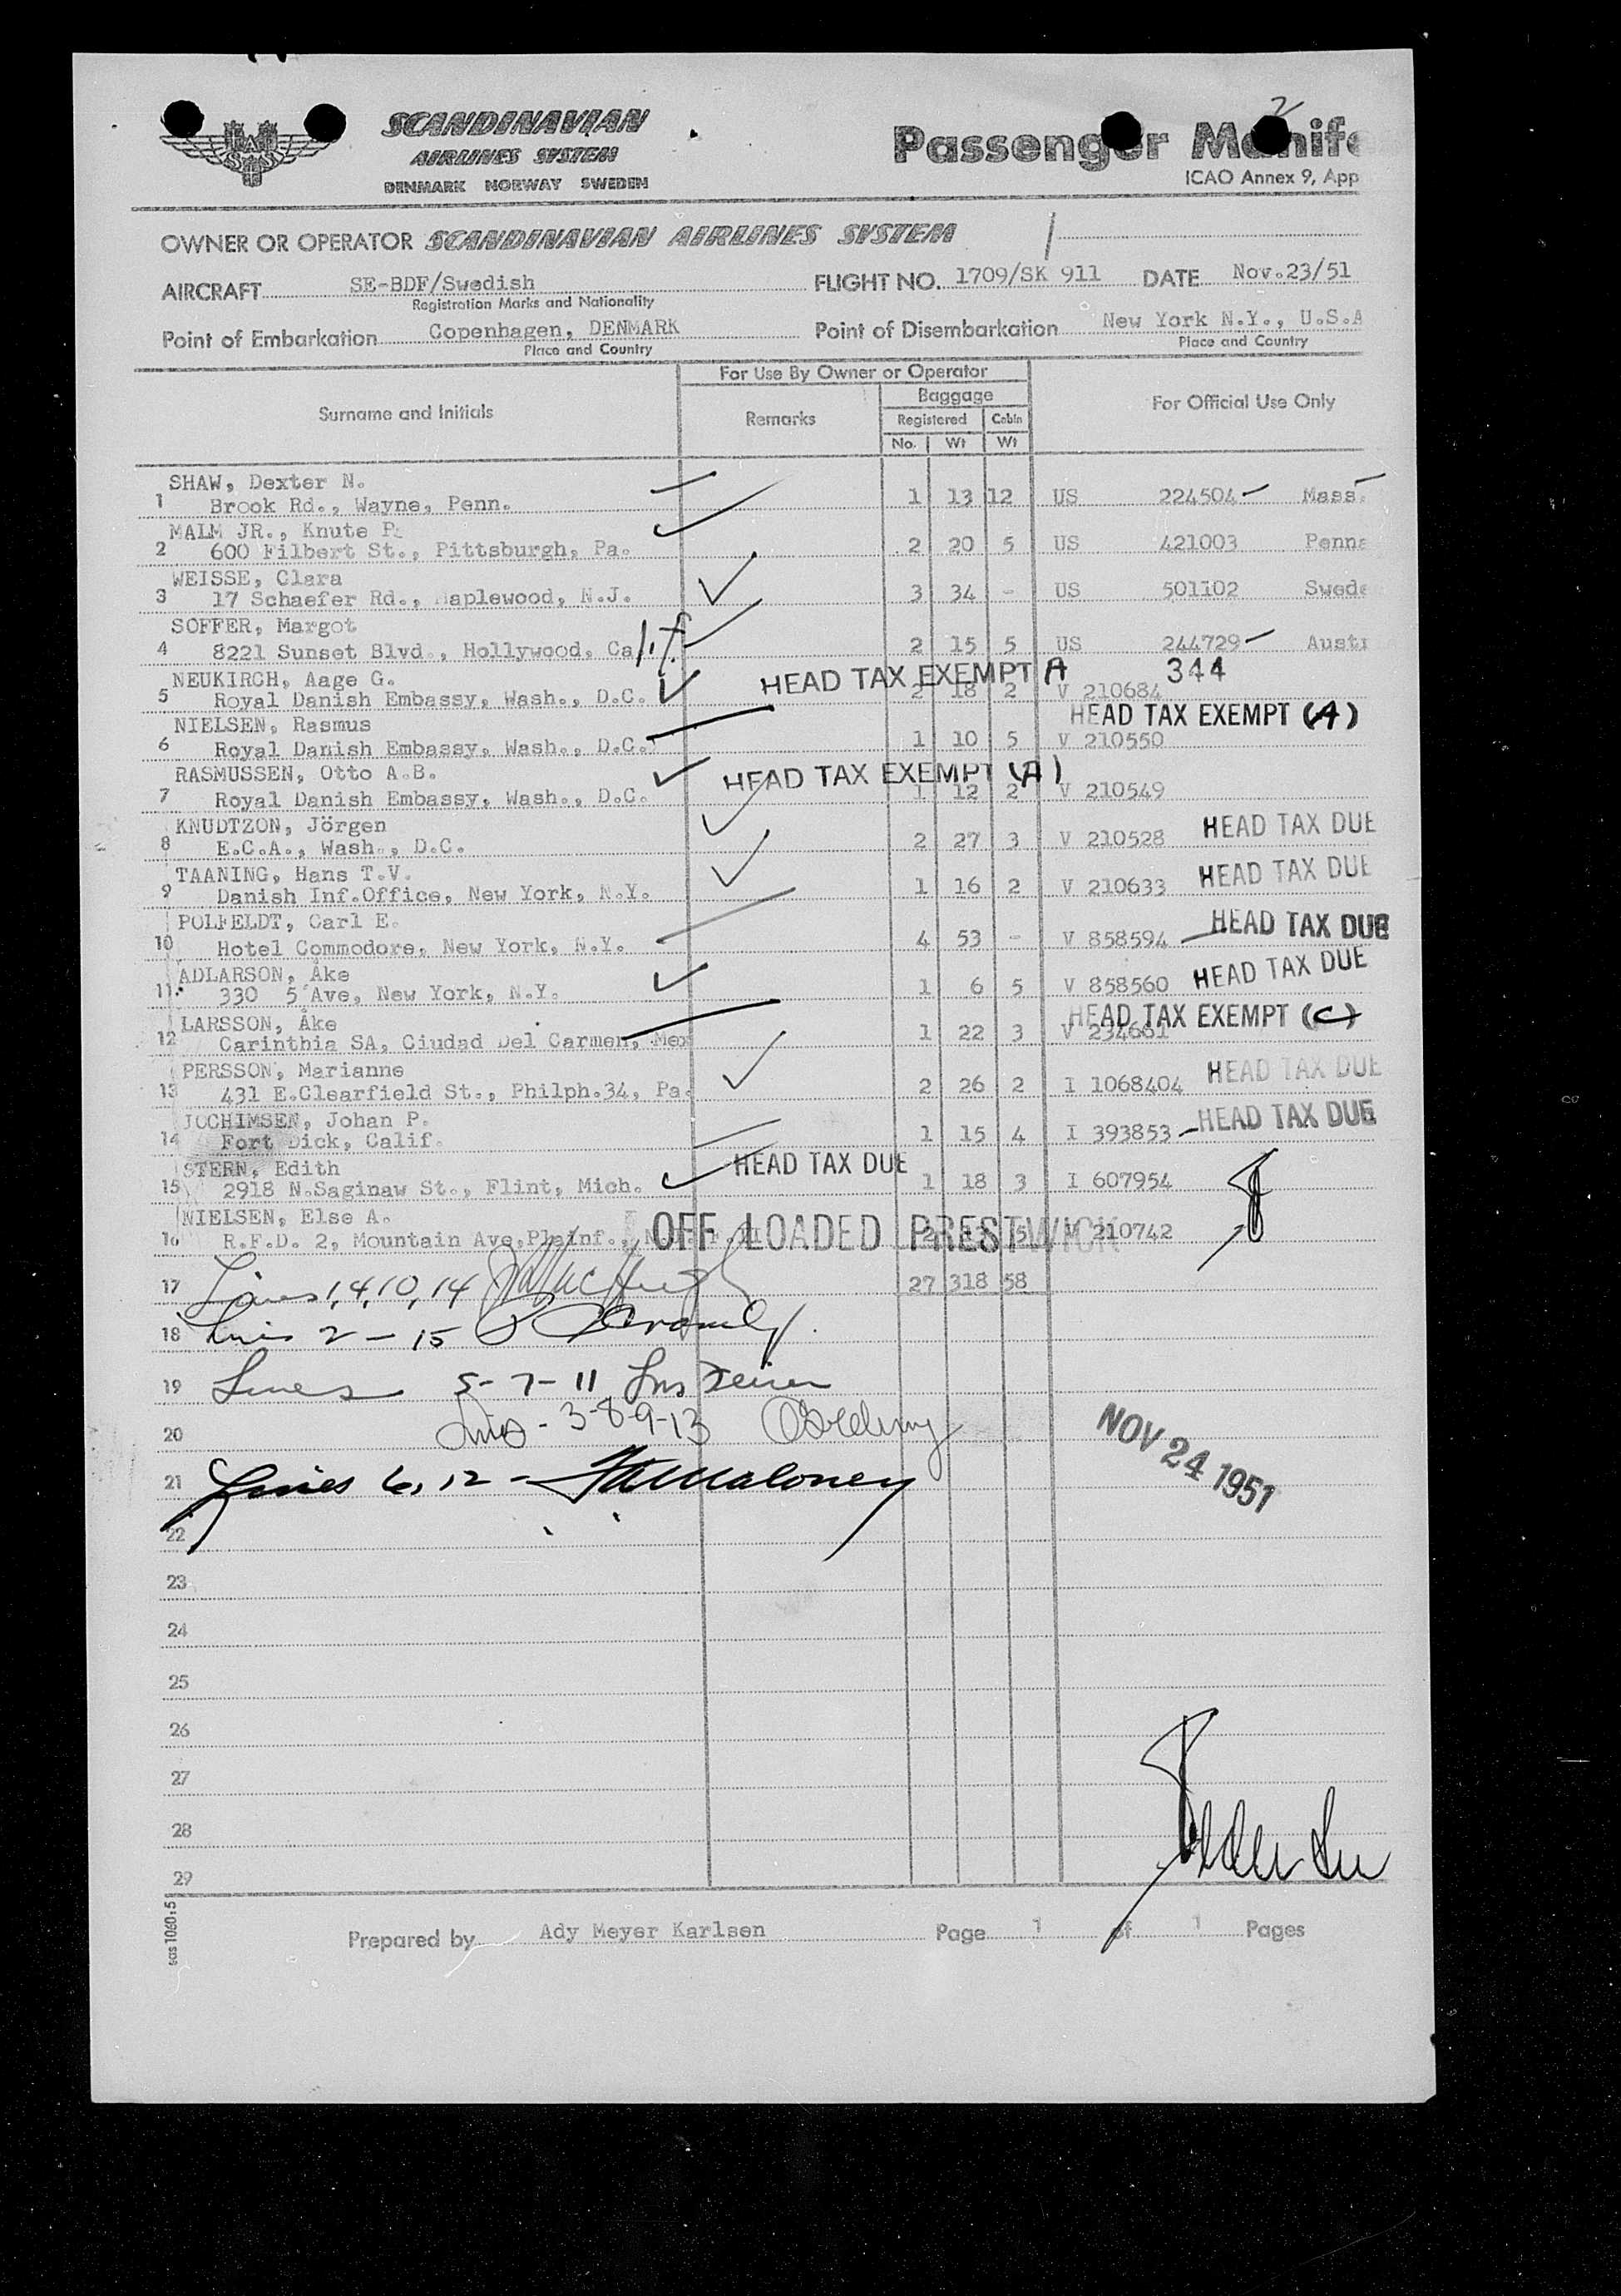 2
SCANDINAVIAN
AIRLINES SYSTEM
DENMARK NORWAY SWEDEN
SAS
Passenger Manife
ICAO Annex 9, App
OWNER OR OPERATOR SCANDINAVIAN AIRLINES SYSTEM
AIRCRAFT SE-BDF/Swedish FLIGHT NO. 1709/SK 911 DATE Nov.23/51
Registration Marks and Nationality
Point of Embarkation Copenhagen, DENMARK Point of Disembarkation New York N.Y., U.S.A
Place and Country Place and Country
For Use By Owner or Operator
Surname and Initials Remarks Baggage For Official Use Only
Registered Cabin
No. Wt Wt
SHAW, Dexter N.
1 Brook Rd., Wayne, Penn. 1 13 12 US 224504 Mass.
MALM JR., Knute P.
2 600 Filbert St., Pittsburgh, Pa. 2 20 5 US 421003 Penna
WEISSE, Clara
3 17 Schaefer Rd., Maplewood, N.J. 3 34 - US 501102 Swede
SOFFER, Margot
4 8221 Sunset Blvd., Hollywood, Calif. 2 15 5 US 244729 Austr
NEUKIRCH, Aage G. HEAD TAX EXEMPT A 344
5 Royal Danish Embassy, Wash., D.C. 2 18 2 V 210684
NIELSEN, Rasmus HEAD TAX EXEMPT (A)
6 Royal Danish Embassy, Wash., D.C. 1 10 5 V 210550
RASMUSSEN, Otto A.B. HEAD TAX EXEMPT (A)
7 Royal Danish Embassy, Wash., D.C. 1 12 2 V 210549
KNUDTZON, Jörgen
8 E.C.A., Wash., D.C. 2 27 3 V 210528 HEAD TAX DUE
TAANING, Hans T.V.
9 Danish Inf.Office, New York, N.Y. 1 16 2 V 210633 HEAD TAX DUE
POLFELDT, Carl E.
10 Hotel Commodore, New York, N.Y. 4 53 - V 858594 HEAD TAX DUE
ADLARSON, Åke
11 330 5 Ave, New York, N.Y. 1 6 5 V 858560 HEAD TAX DUE
LARSSON, Åke HEAD TAX EXEMPT (C)
12 Carinthia SA, Ciudad Del Carmen, Mex 1 22 3 V 234661
PERSSON, Marianne
13 431 E.Clearfield St., Philph.34, Pa. 2 26 2 I 1068404 HEAD TAX DUE
JOCHIMSEN, Johan P.
14 Fort Dick, Calif. 1 15 4 I 393853 HEAD TAX DUE
STERN, Edith HEAD TAX DUE
15 2918 N.Saginaw St., Flint, Mich. 1 18 3 I 607954
NIELSEN, Else A. OFF LOADED PRESTWICK
16 R.F.D. 2, Mountain Ave,Plainf., 2 13 5 210742
17 Lines 1, 4, 10, 14 27 318 58
18 Lines 2 - 15
19 Lines 5 - 7 - 11
20 Lines - 3-8-9-13
NOV 24 1951
21 Lines 6, 12 - Maloney
22
23
24
25
26
27
28
29
sas 1060:5
Prepared by Ady Meyer Karlsen Page 1 of 1 Pages